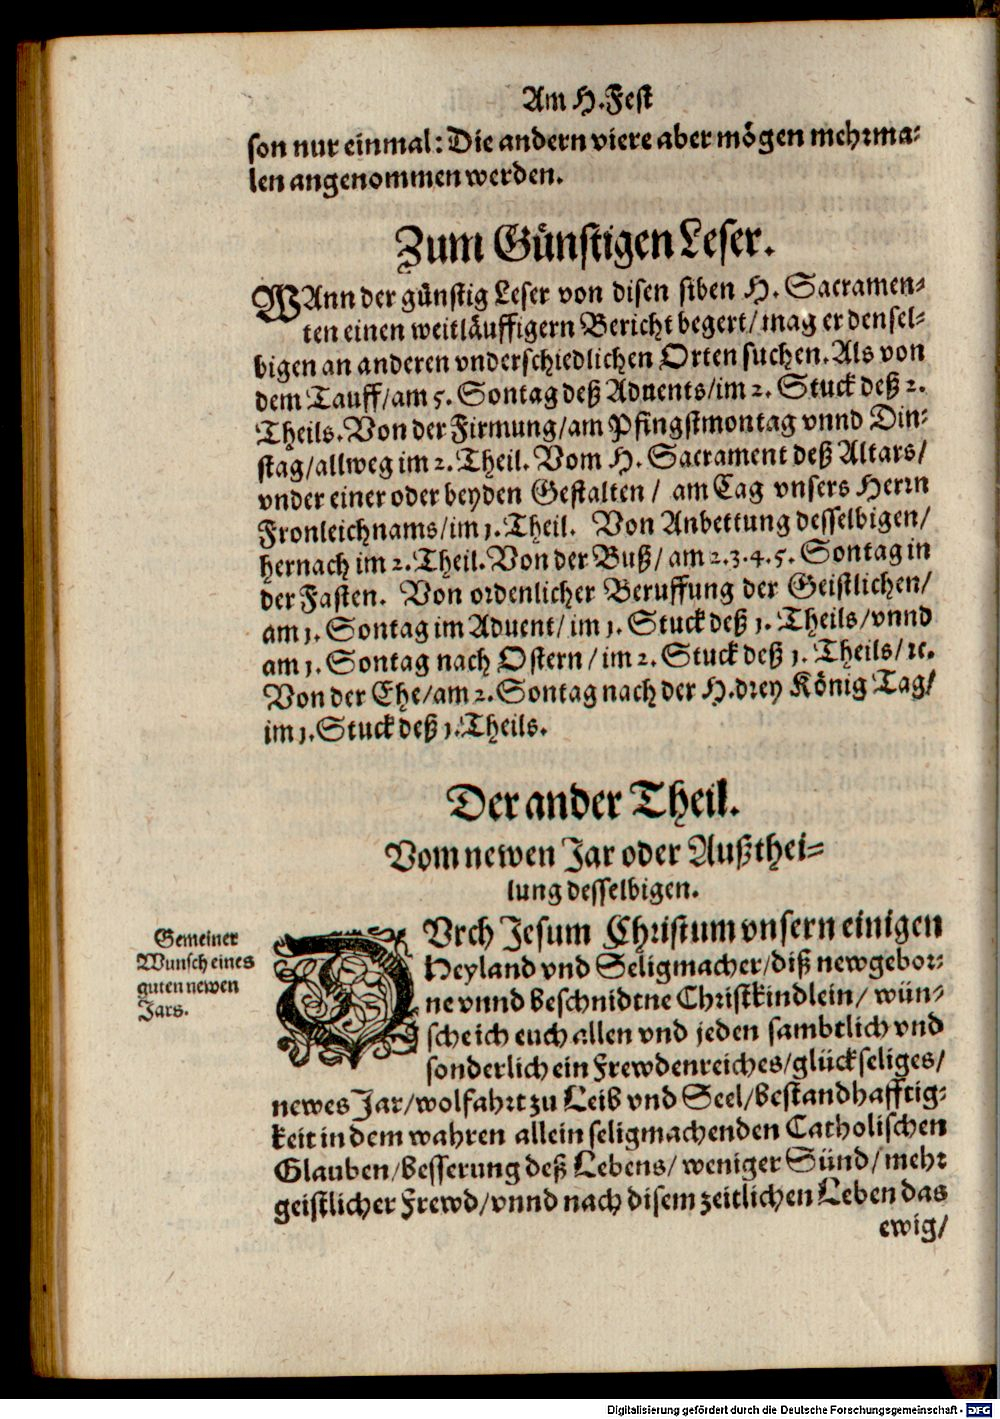 Am H. Fest
son nur einmal: Die andern viere aber mögen mehrma-
len angenommen werden.
Zum Günstigen Leser.
WAnn der günstig Leser von disen siben H. Sacramen-
ten einen weitläuffigern Bericht begert/ mag er densel-
bigen an anderen vnderschiedlichen Orten suchen. Als von
dem Tauff/ am 5. Sontag deß Aduents/ im 2. Stuck deß 2.
Theils. Von der Firmung/ am Pfingstmontag vnnd Din-
stag/ allweg im 2. Theil. Vom H. Sacrament deß Altars/
vnder einer oder beyden Gestalten/ am Tag vnsers Herrn
Fronleichnams/ im 1. Theil. Von Anbettung desselbigen/
hernach im 2. Theil. Von der Buß/ am 2. 3. 4. 5. Sontag in
der Fasten. Von ordenlicher Beruffung der Geistlichen/
am 1. Sontag im Aduent/ im 1. Stuck deß 1. Theils/ vnnd
am 1. Sontag nach Ostern/ im 2. Stuck deß 1. Theils/ ꝛc.
Von der Ehe/ am 2. Sontag nach der H. drey König Tag/
im 1. Stuck deß 1. Theils.
Der ander Theil.
Vom newen Jar oder Außthei-
lung desselbigen.
Gemeiner
Wunsch eines
guten newen
Jars.
DVrch Jesum Christum vnsern einigen
Heyland vnd Seligmacher/ diß newgebor-
ne vnnd beschnidtne Christkindlein/ wün-
sche ich euch allen vnd jeden sambtlich vnd
sonderlich ein frewdenreiches/ glückseliges/
newes Jar/ wolfahrt zu Leib vnd Seel/ bestandhafftig-
keit in dem wahren allein seligmachenden Catholischen
Glauben/ besserung deß Lebens/ weniger Sünd/ mehr
geistlicher frewd/ vnnd nach disem zeitlichen Leben das
ewig/
Digitalisierung gefördert durch die Deutsche Forschungsgemeinschaft - DFG